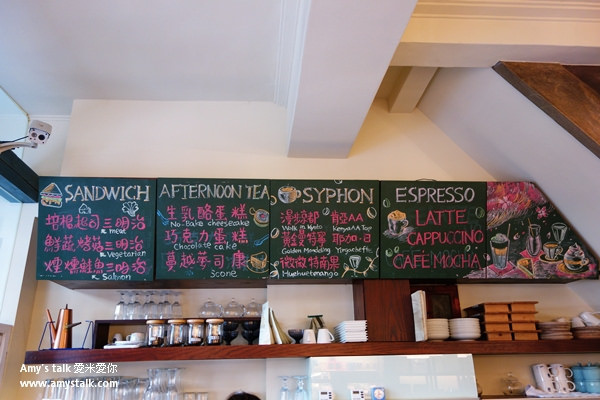 SANDWICH
培根起司三明治
& meat
鮮蔬烤菇三明治
& Vegetarian
煙燻鮭魚三明治
& Salmon
AFTERNOON TEA
生乳酪蛋糕
No-Bake cheesecake
巧克力蛋糕
Chocolate cake
蔓越莓司康
Scone
SYPHON
漫步京都
Walk in Kyoto
肯亞AA
Kenya AA Top
黃金曼特寧
Golden Mandeling
耶加
Yirgacheffe
微微特南果
Huehuetenango
ESPRESSO
LATTE
CAPPUCCINO
CAFÉ MOCHA
Amy's talk 愛米愛你
www.amystalk.com